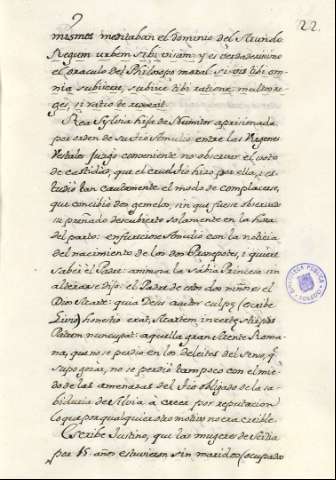 22.
mismos meritaban el dominio del Mundo
Regum urbem sibi visam: y es verdaderisimo
el oraculo del Philosopo moral: si vis tibi om-
nia subijcere, subijce tibi rationi, multos re-
ges, si ratio te rexerit.
Rea Sylvia hija de Numitor aprisionada
por orden de su tio Amulio entre las Virgenes
Vestales juzgó conveniente no observar el voto
de castidad, que el cruel tio hizo por ella; y es-
tudió tan cautamente el modo de complacerse,
que concibio dos gemelos, sin que fuese observado
su preñado descubierto solamente en la hora
del parto: enfureciose Amulio con la noticia
del nacimiento de los dos Principes, i quiere
saber el Padre: animosa la sabia Princesa sin
alterarse dijo: el Padre de estos dos niños es el
Dios Marte: quia Deus autor culpę (escribe
Livio) honestior erat, Martem incertę stirpis
Patrem nuncupat: aquella gran Mente Roma-
na, que no se perdio en los deleites del Seno, q̃
supo gozar, no se perdio tampoco con el mie-
do de las amenazas del tio obligado de la sa-
biduria de Silvia, á creer por reputacion
lo que por qualquier otro motivo no era creible
Escribe Justino, que las mugeres de Scitia
por 15 años estuvieron sin maridos (ocupados
BIBLIOTECA PUBLICA
TOLEDO